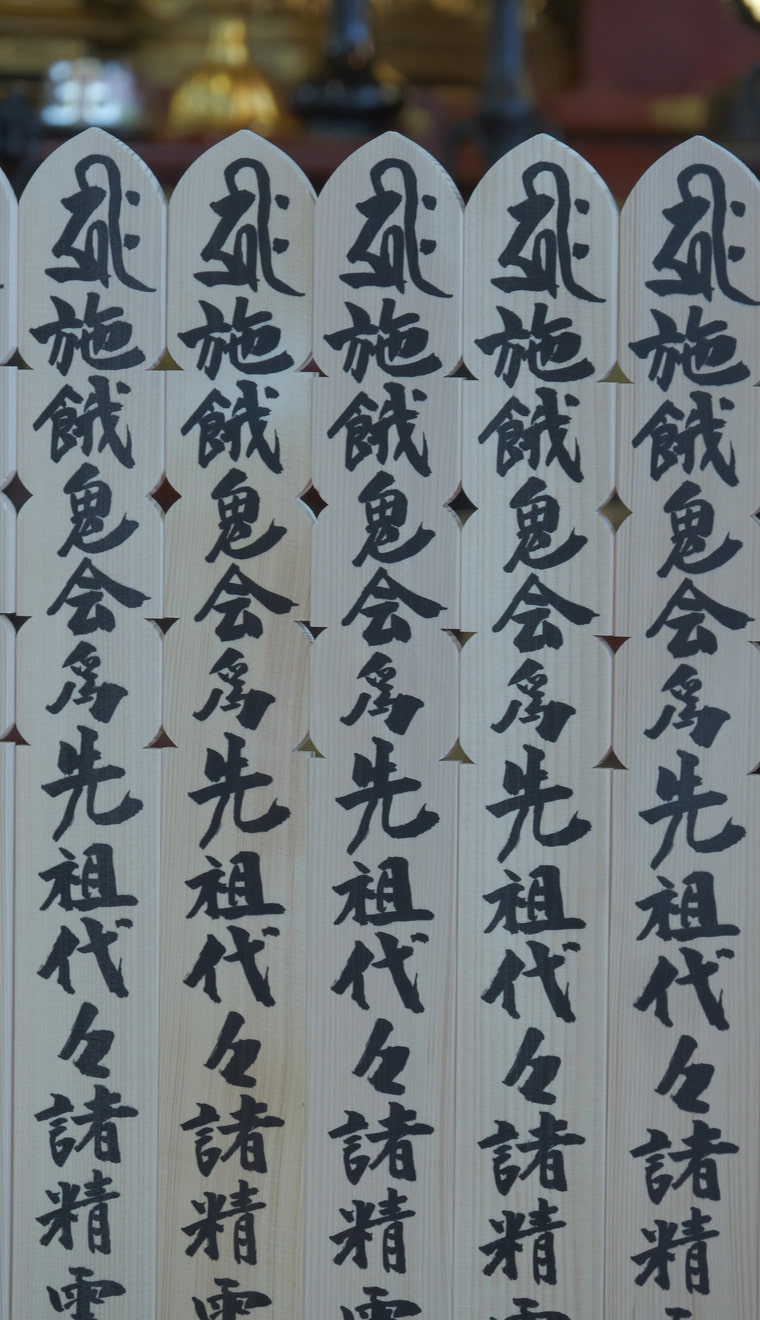 𑖮𑖿𑖨𑖱𑖾施餓鬼会爲先祖代々諸精
𑖮𑖿𑖨𑖱𑖾施餓鬼会爲先祖代々諸精
𑖮𑖿𑖨𑖱𑖾施餓鬼会爲先祖代々諸精
𑖮𑖿𑖨𑖱𑖾施餓鬼会爲先祖代々諸精
𑖮𑖿𑖨𑖱𑖾施餓鬼会爲先祖代々諸精